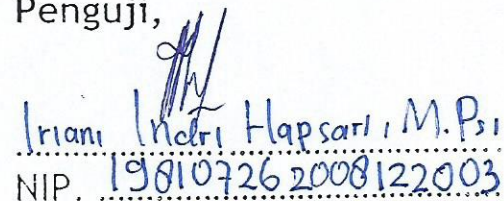 Penguji,
Iriani Indri Hapsari, M.Psi
NIP. 19810726 200812 2003